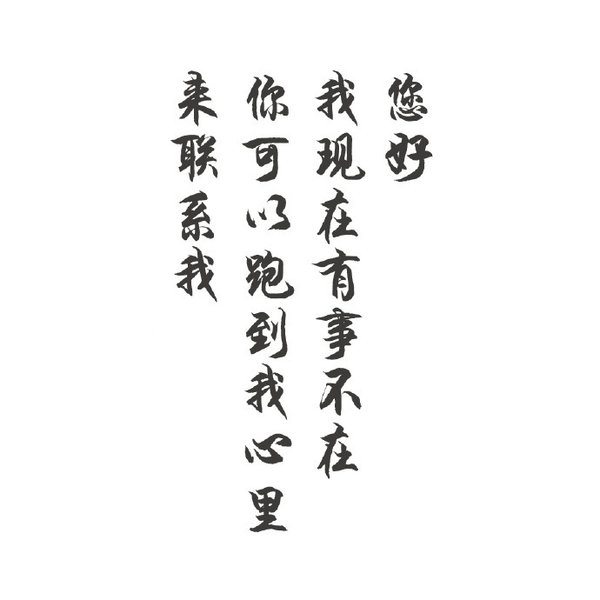 您好
我现在有事不在
你可以跑到我心里
来联系我